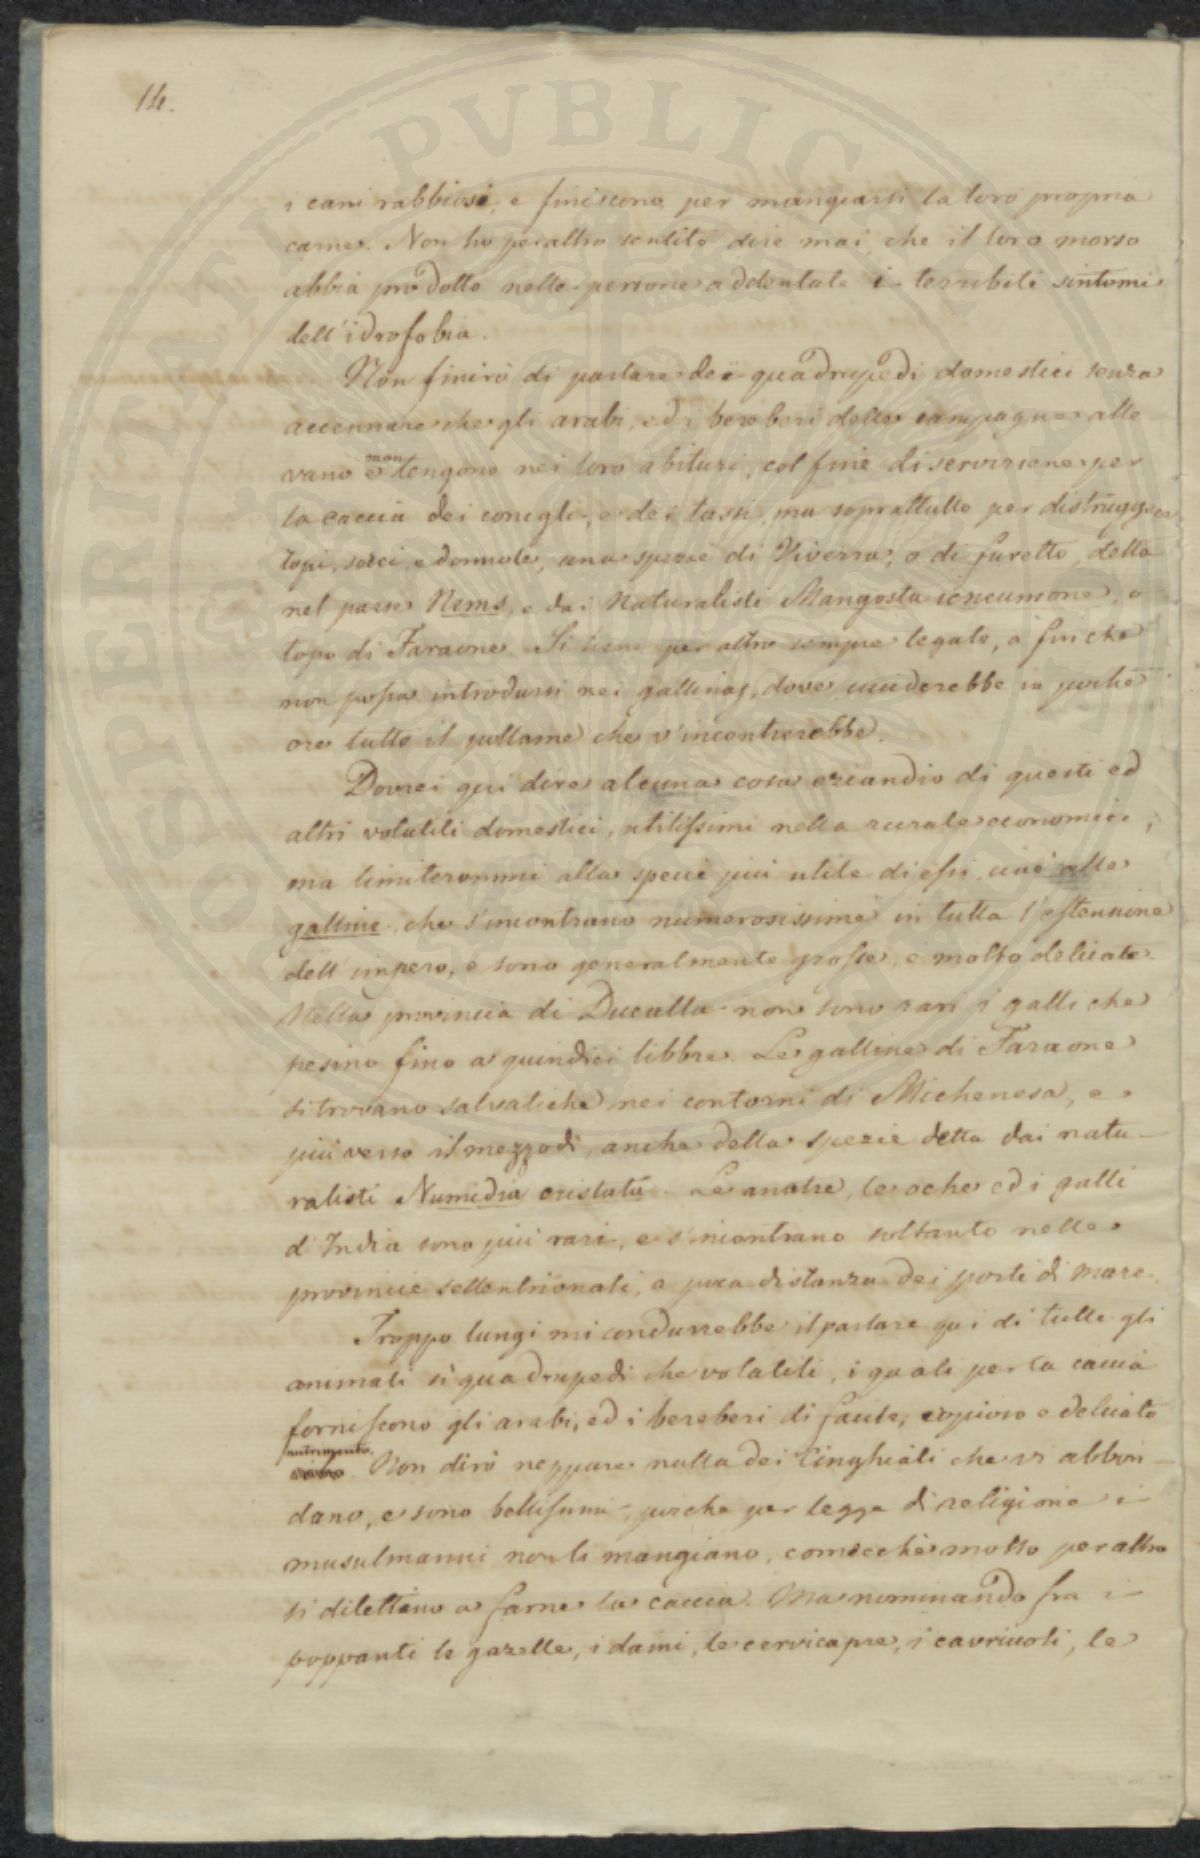 14.
i cani rabbiosi, e finiscono per mangiarsi la loro propria
carne. Non ho peraltro sentito dire mai, che il loro morso
abbia prodotto nelle persone addentate i terribili sintomi
dell'idrofobia.
Non finirò di parlare dei quadrupedi domestici senza
accennare che gli arabi, ed i bereberi delle campagne alle
vano e tengono nei loro abituri, col fine di servirsene per
la caccia dei conigli, e dei tassi, ma soprattutto per distruggere
topi, sorci, e donnole, una spezie di Viverra, o di furetto, detta
nel paese Nems, e dai Naturalisti Mangosta icneumone, o
topo di Faraone. Si tiene per altro sempre legato, a fin che
non possa introdursi nei gallinaj, dove ucciderebbe in poche
ore tutto il pollame che v'incontrerebbe.
Dovrei qui dire alcuna cosa eziandio di questi ed
altri volatili domestici, utilissimi nella rurale economia,
ma limiterommi alla specie più utile di essi, cioè alle
galline, che s'incontrano numerosissime in tutta l'estensione
dell'impero, e sono generalmente grosse, e molto delicate.
Nella provincia di Ducalla non sono rari i galli che
pesino fino a quindici libbre. Le galline di Faraone
si trovano salvatiche nei contorni di Michenesa, e
più verso il mezzodì, anche della spezie detta dai natu-
ralisti Numidia cristata. Le anatre, le oche ed i galli
d'India sono più rari, e s'incontrano soltanto nelle
provincie settentrionali, a poca distanza dei porti di mare.
Troppo lungi mi condurrebbe il parlare qui di tutte gli
animali sì quadrupedi che volatili, i quali per la caccia
forniscono gli arabi, ed i bereberi di facile, copioso e delicato
nutrimento.
Non dirò neppure nulla dei Cinghiali che vi abbon-
dano, e sono bellissimi, perche per legge di religione i
musulmanni non li mangiano, comecchè molto per altro
si dilettino a farne la caccia. Ma nominando fra i
poppanti le gazelle, i dami, le cervicapre, i cavriuoli, le